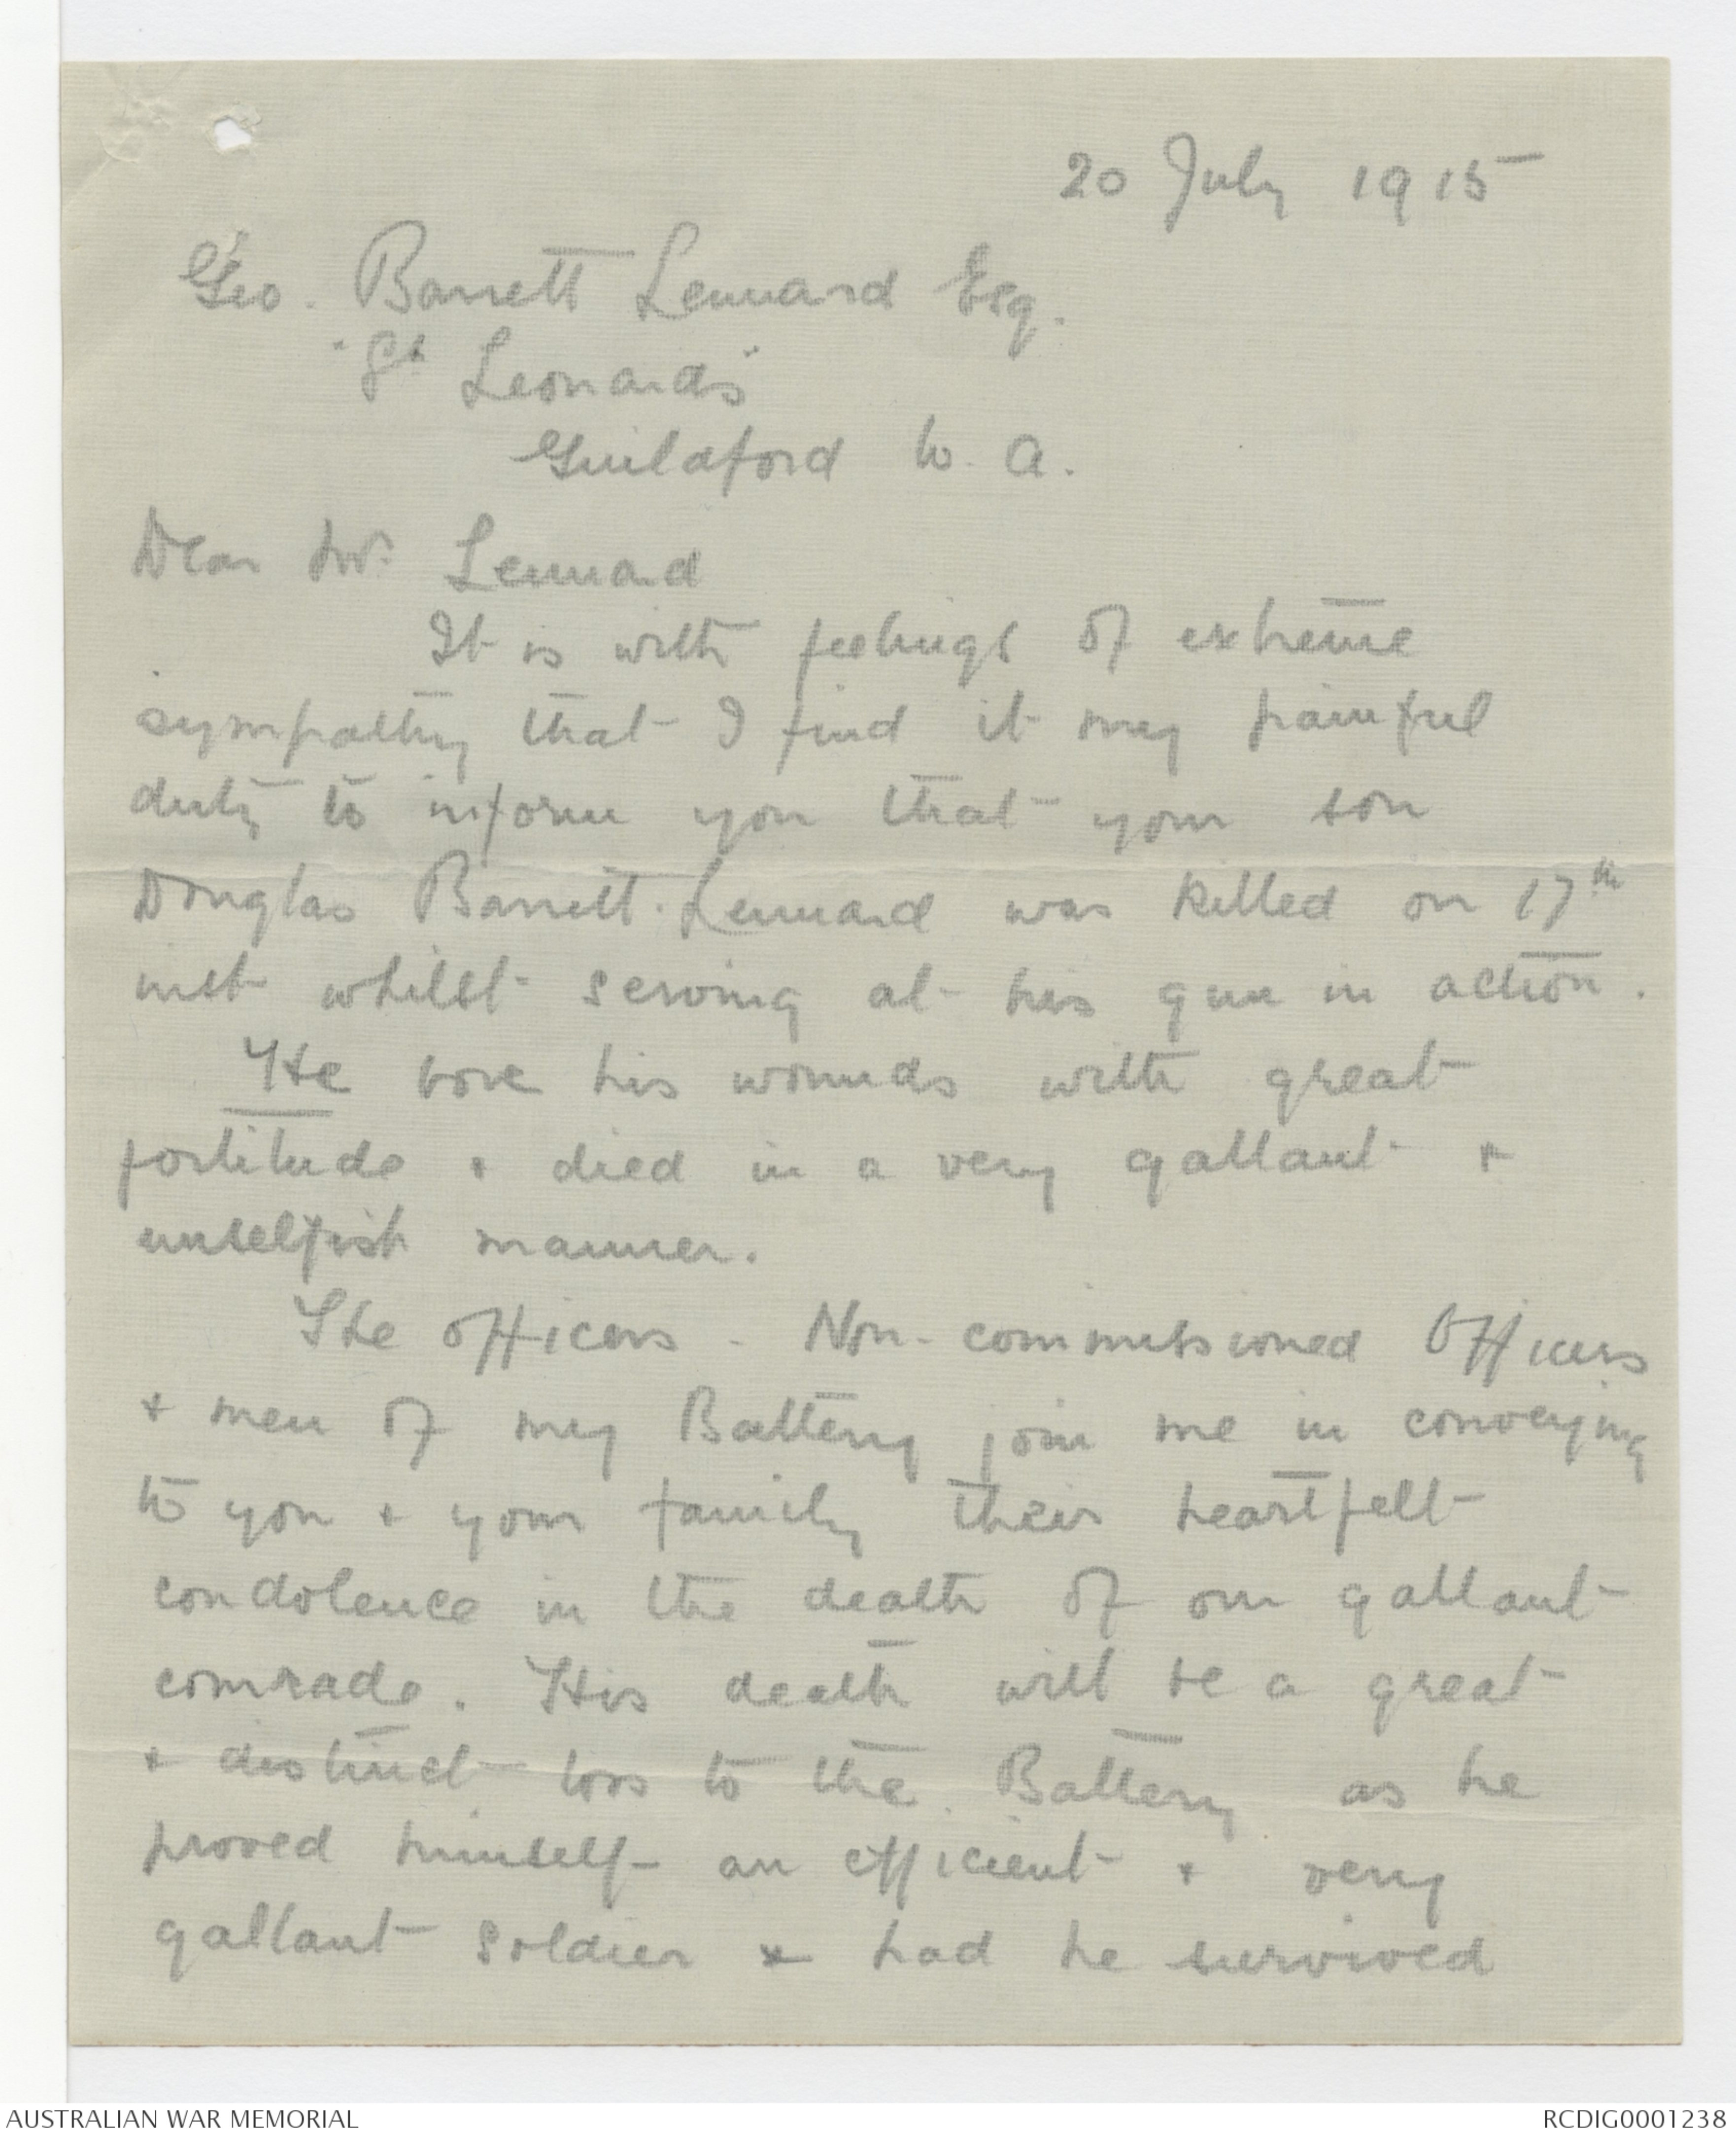 20 July 1915
Geo. Barrett Lennard Esq.
"St Leonards"
Guildford W. A.
Dear Mr. Lennard
It is with feelings of extreme
sympathy that I find it my painful
duty to inform you that your son
Douglas Barrett-Lennard was killed on 17th
inst whilst serving at his gun in action.
He bore his wounds with great
fortitude & died in a very gallant &
unselfish manner.
The officers - Non-commissioned Officers
& men of my Battery join me in conveying
to you & your family their heartfelt
condolence in the death of our gallant
comrade. His death will be a great
& distinct loss to the Battery as he
proved himself an efficient & very
gallant soldier & had he survived
AUSTRALIAN WAR MEMORIAL
RCDIG0001238